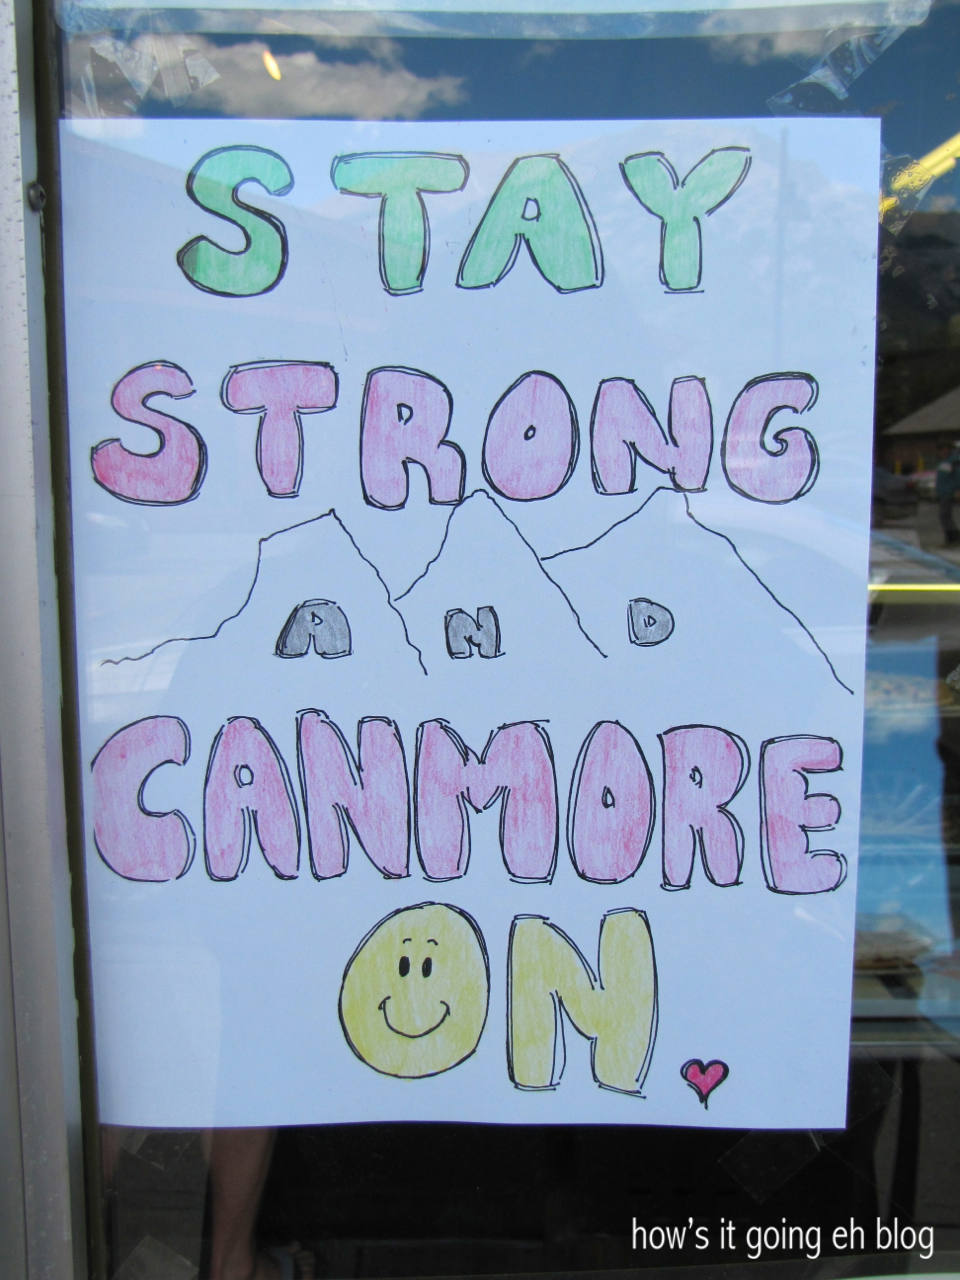 STAY
STRONG
AND
CANMORE
ON
how's it going eh blog